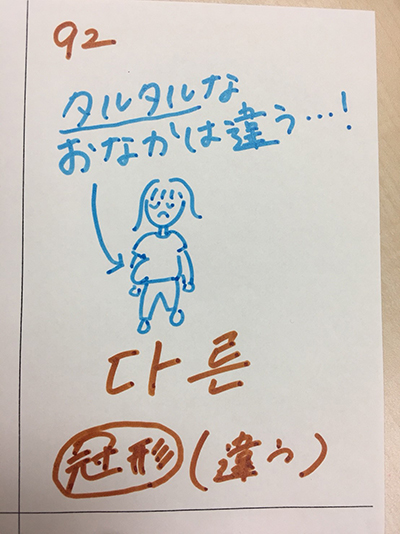 92
タルタルな
おなかは違う…!
다른
冠形(違う)